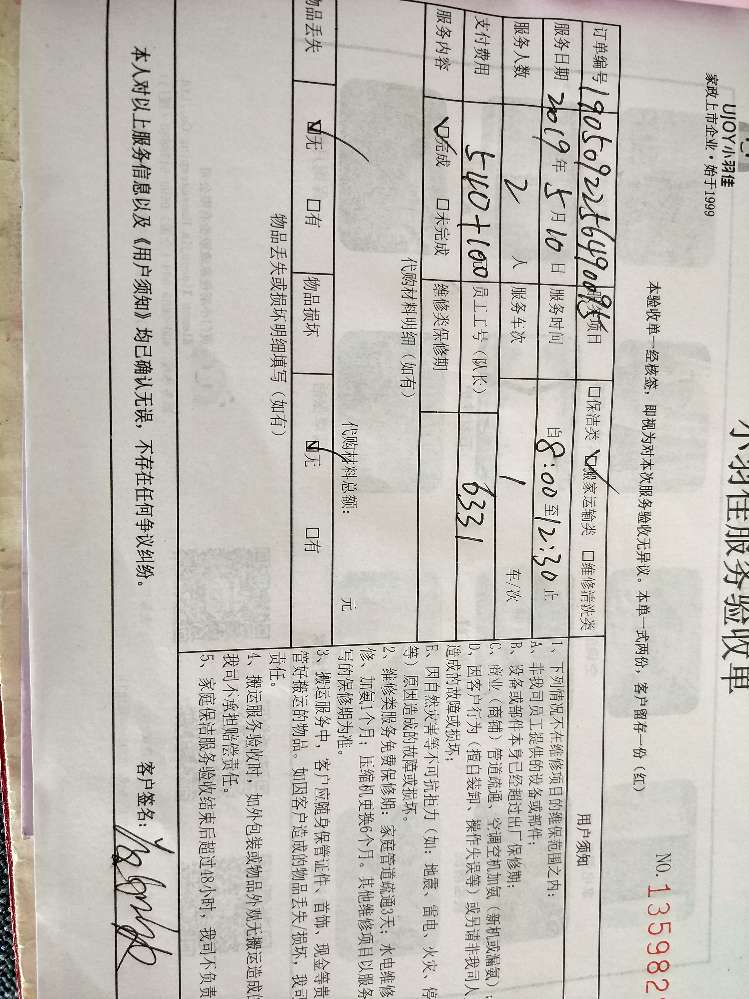 UJOY小羽佳
家政上市企业·始于1999
小羽佳服务验收单
NO.135982
本验收单一经核签，即视为对本次服务验收无异议。本单一式两份，客户留存一份（红）
订单编号 1905092256490095 服务项目 □保洁类 ☑搬家运输类 □维修清洗类
服务日期 2019年5月10日 服务时间 自8:00至12:30止
服务人数 2人 服务车次 1 车/次
支付费用 540+100 员工工号（队长） 6331
服务内容 ☑完成 □未完成 维修类保修期
代购材料明细（如有）
代购材料总额： 元
物品丢失 ☑无 □有 物品损坏 ☑无 □有
物品丢失或损坏明细填写（如有）
用户须知
1、下列情况不在维修项目的维保范围之内：
A、非我司员工提供的设备或部件；
B、设备或部件本身已经超过出厂保修期；
C、商业（商铺）管道疏通、空调空机加氨（新机或漏氨）；
D、因客户行为（擅自装卸、操作失误等，或另请非我司人
造成的故障或损坏；
E、因自然灾害等不可抗拒力（如：地震、雷电、火灾、停
等）原因造成的故障或损坏。
2、维修类服务免费保修期：家庭管道疏通3天；水电维修
修、加氨1个月；压缩机更换6个月。其他维修项目以服务
写的保修期为准。
3、搬运服务中，客户应随身保管证件、首饰、现金等贵
管好搬运的物品。如因客户造成的物品丢失/损坏，我司
责任。
4、搬运服务验收时，如外包装或物品外观无搬运造成的
我司不承担赔偿责任。
5、家庭保洁服务验收结束后超过48小时，我司不负责
本人对以上服务信息以及《用户须知》均已确认无误，不存在任何争议纠纷。
客户签名：